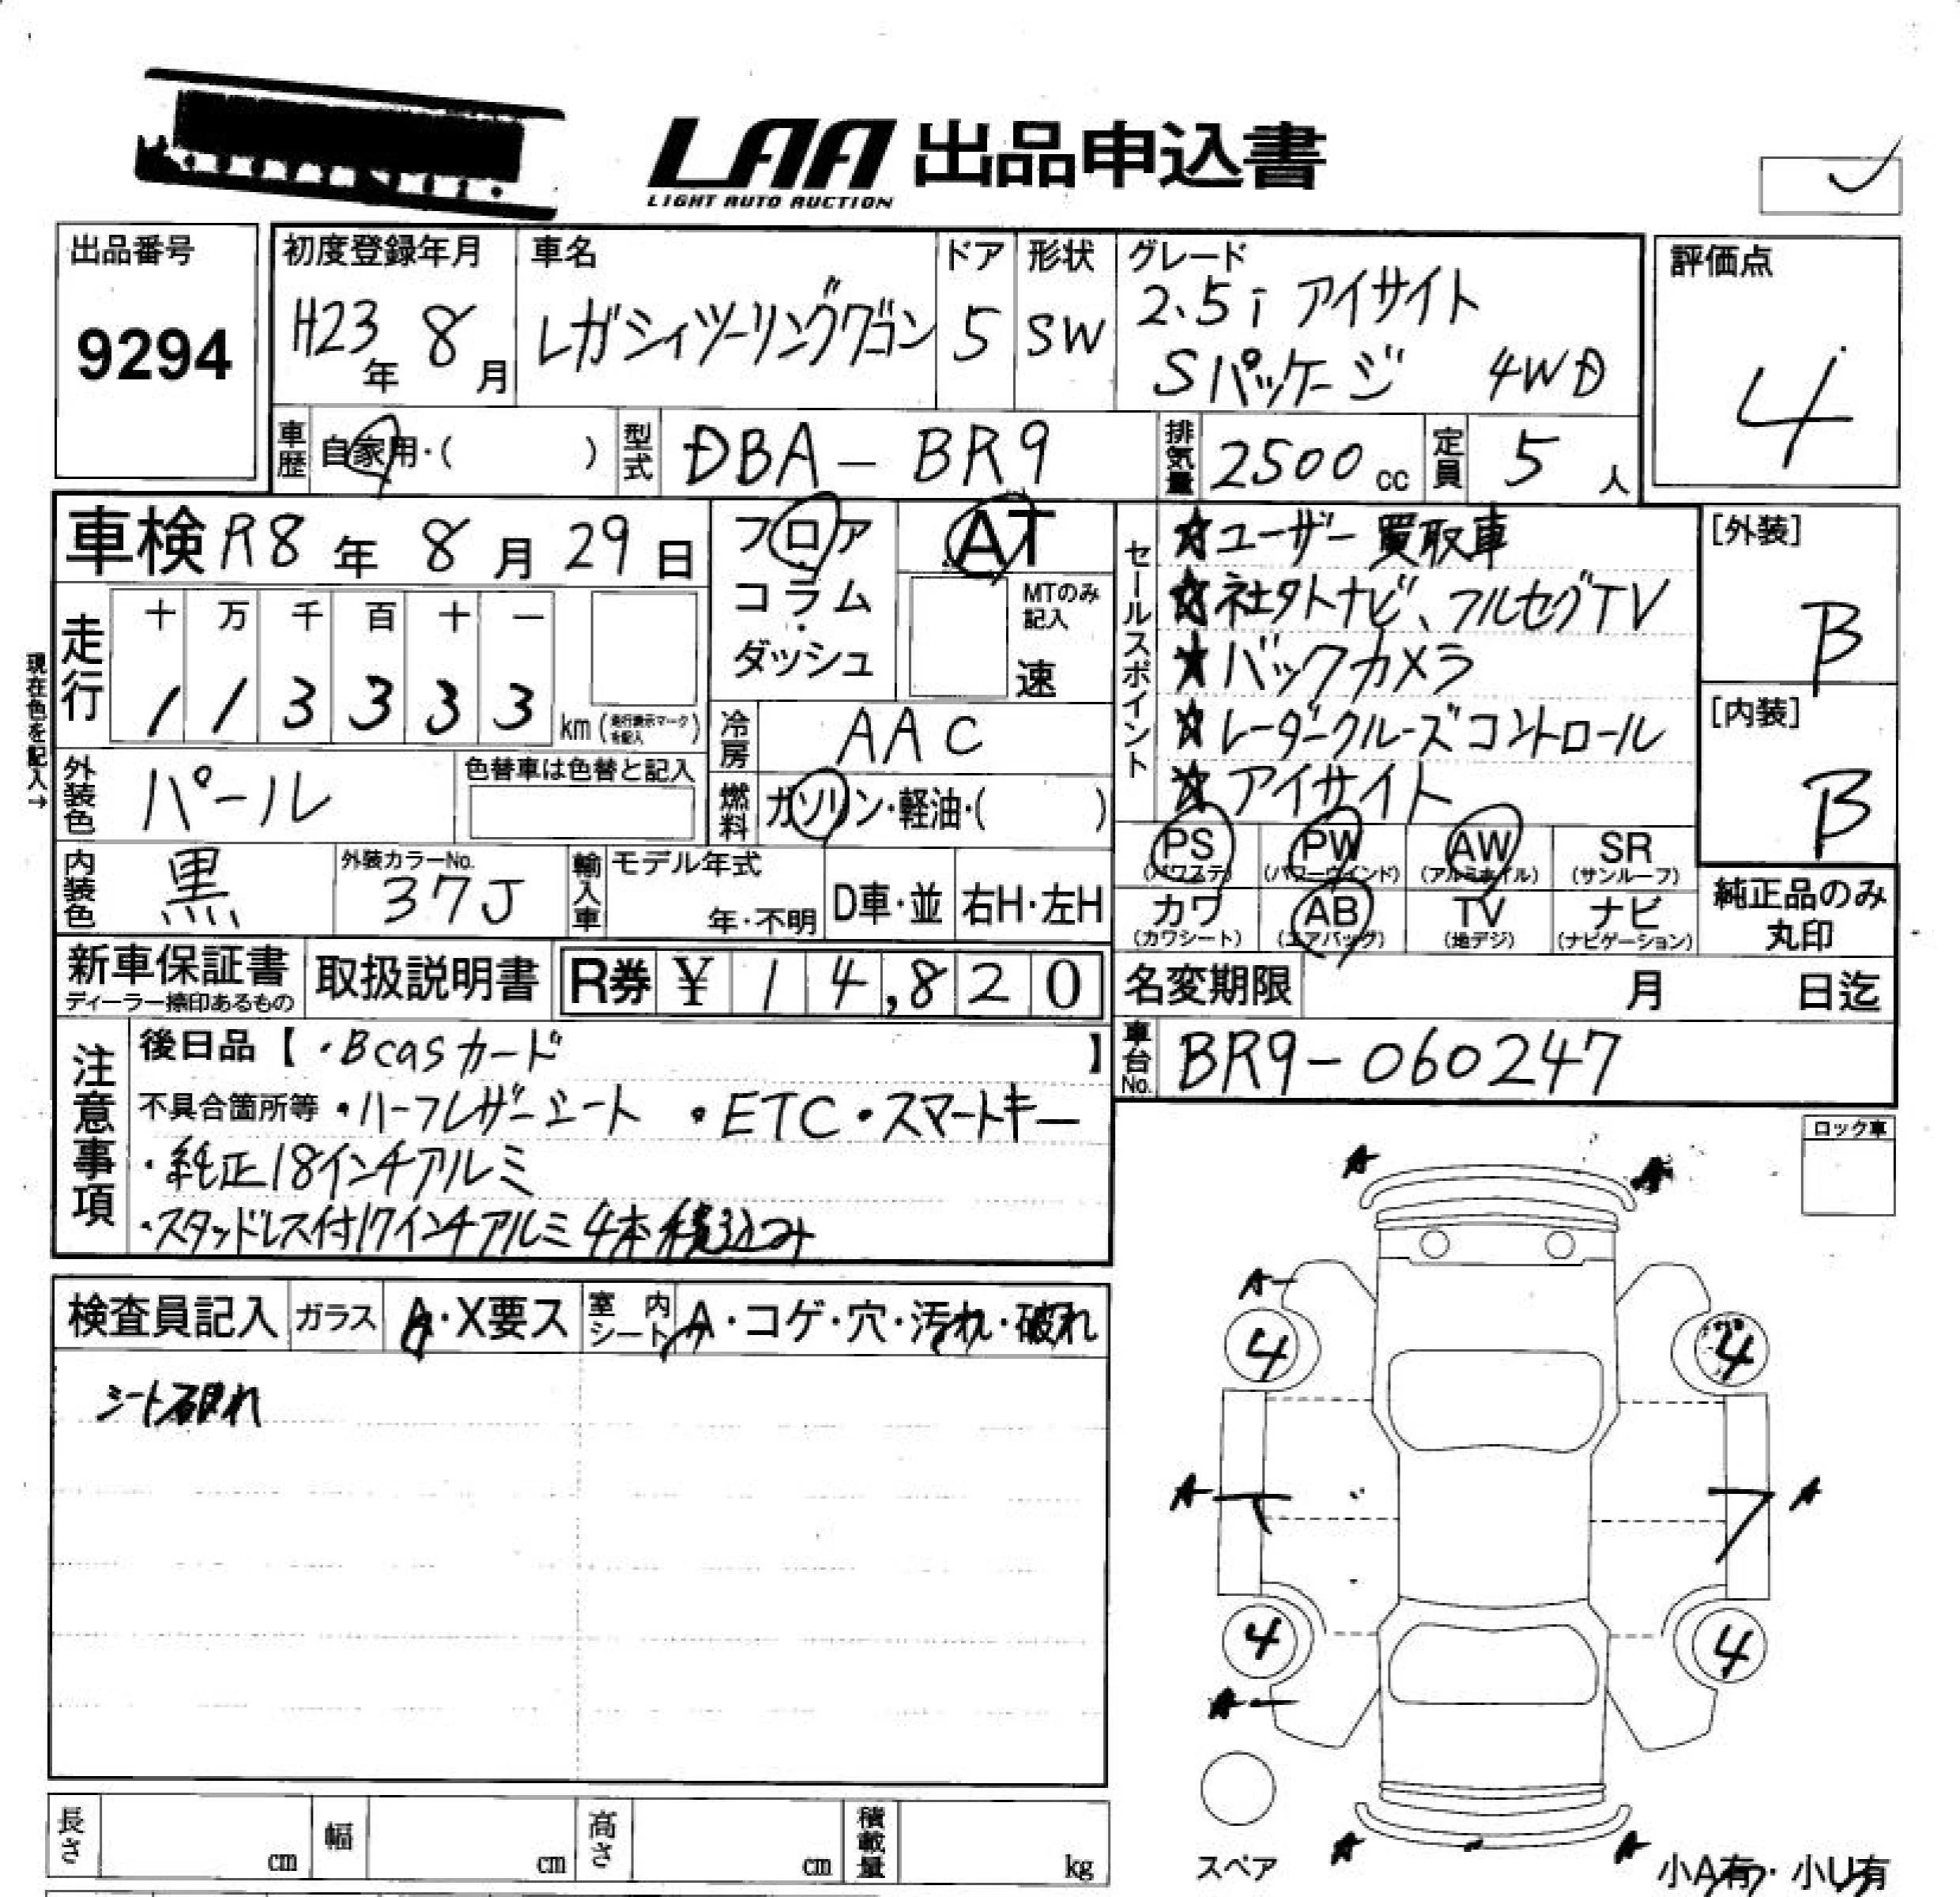 LAA 出品申込書
LIGHT AUTO AUCTION
出品番号
9294
初度登録年月
H23年 8月
車名
レガシィツーリングワゴン
ドア
5
形状
SW
グレード
2.5i アイサイト
Sパッケージ 4WD
評価点
4
車歴 自家用・( )
型式 DBA-BR9
排気量 2500cc
定員 5人
車検 R8年 8月 29日
走行 十 万 千 百 十 一
1 1 3 3 3 3 km
現在色を記入→
フロア
コラム
ダッシュ
AT
MTのみ記入
速
冷房 AAC
燃料 ガソリン・軽油・( )
外装色 パール
色替車は色替と記入
内装色 黒
外装カラーNo.
37J
輸入車 モデル年式
年・不明
D車・並
右H・左H
セールスポイント
☆ユーザー買取車
☆社外ナビ、フルセグTV
★バックカメラ
☆レーダークルーズコントロール
☆アイサイト
[外装]
B
[内装]
B
PS (パワステ) PW (パワーウインド) AW (アルミホイル) SR (サンルーフ)
カワ (カワシート) AB (エアバッグ) TV (地デジ) ナビ (ナビゲーション)
純正品のみ丸印
新車保証書
ディーラー捺印あるもの
取扱説明書
R券 ¥ 14,820
名変期限 月 日迄
車台No. BR9-060247
注意事項
後日品【・Bcasカード 】
不具合箇所等 ・ハーフレザーシート ・ETC・スマートキー
・純正18インチアルミ
・スタッドレス付17インチアルミ4本積込み
ロック車
検査員記入 ガラス A・X要ス 室内シート A・コゲ・穴・汚れ・破れ
シート破れ
A A
A
4 4
A A
4 4
A
A A
スペア
小A有・小U有
長さ cm 幅 cm 高さ cm 積載量 kg